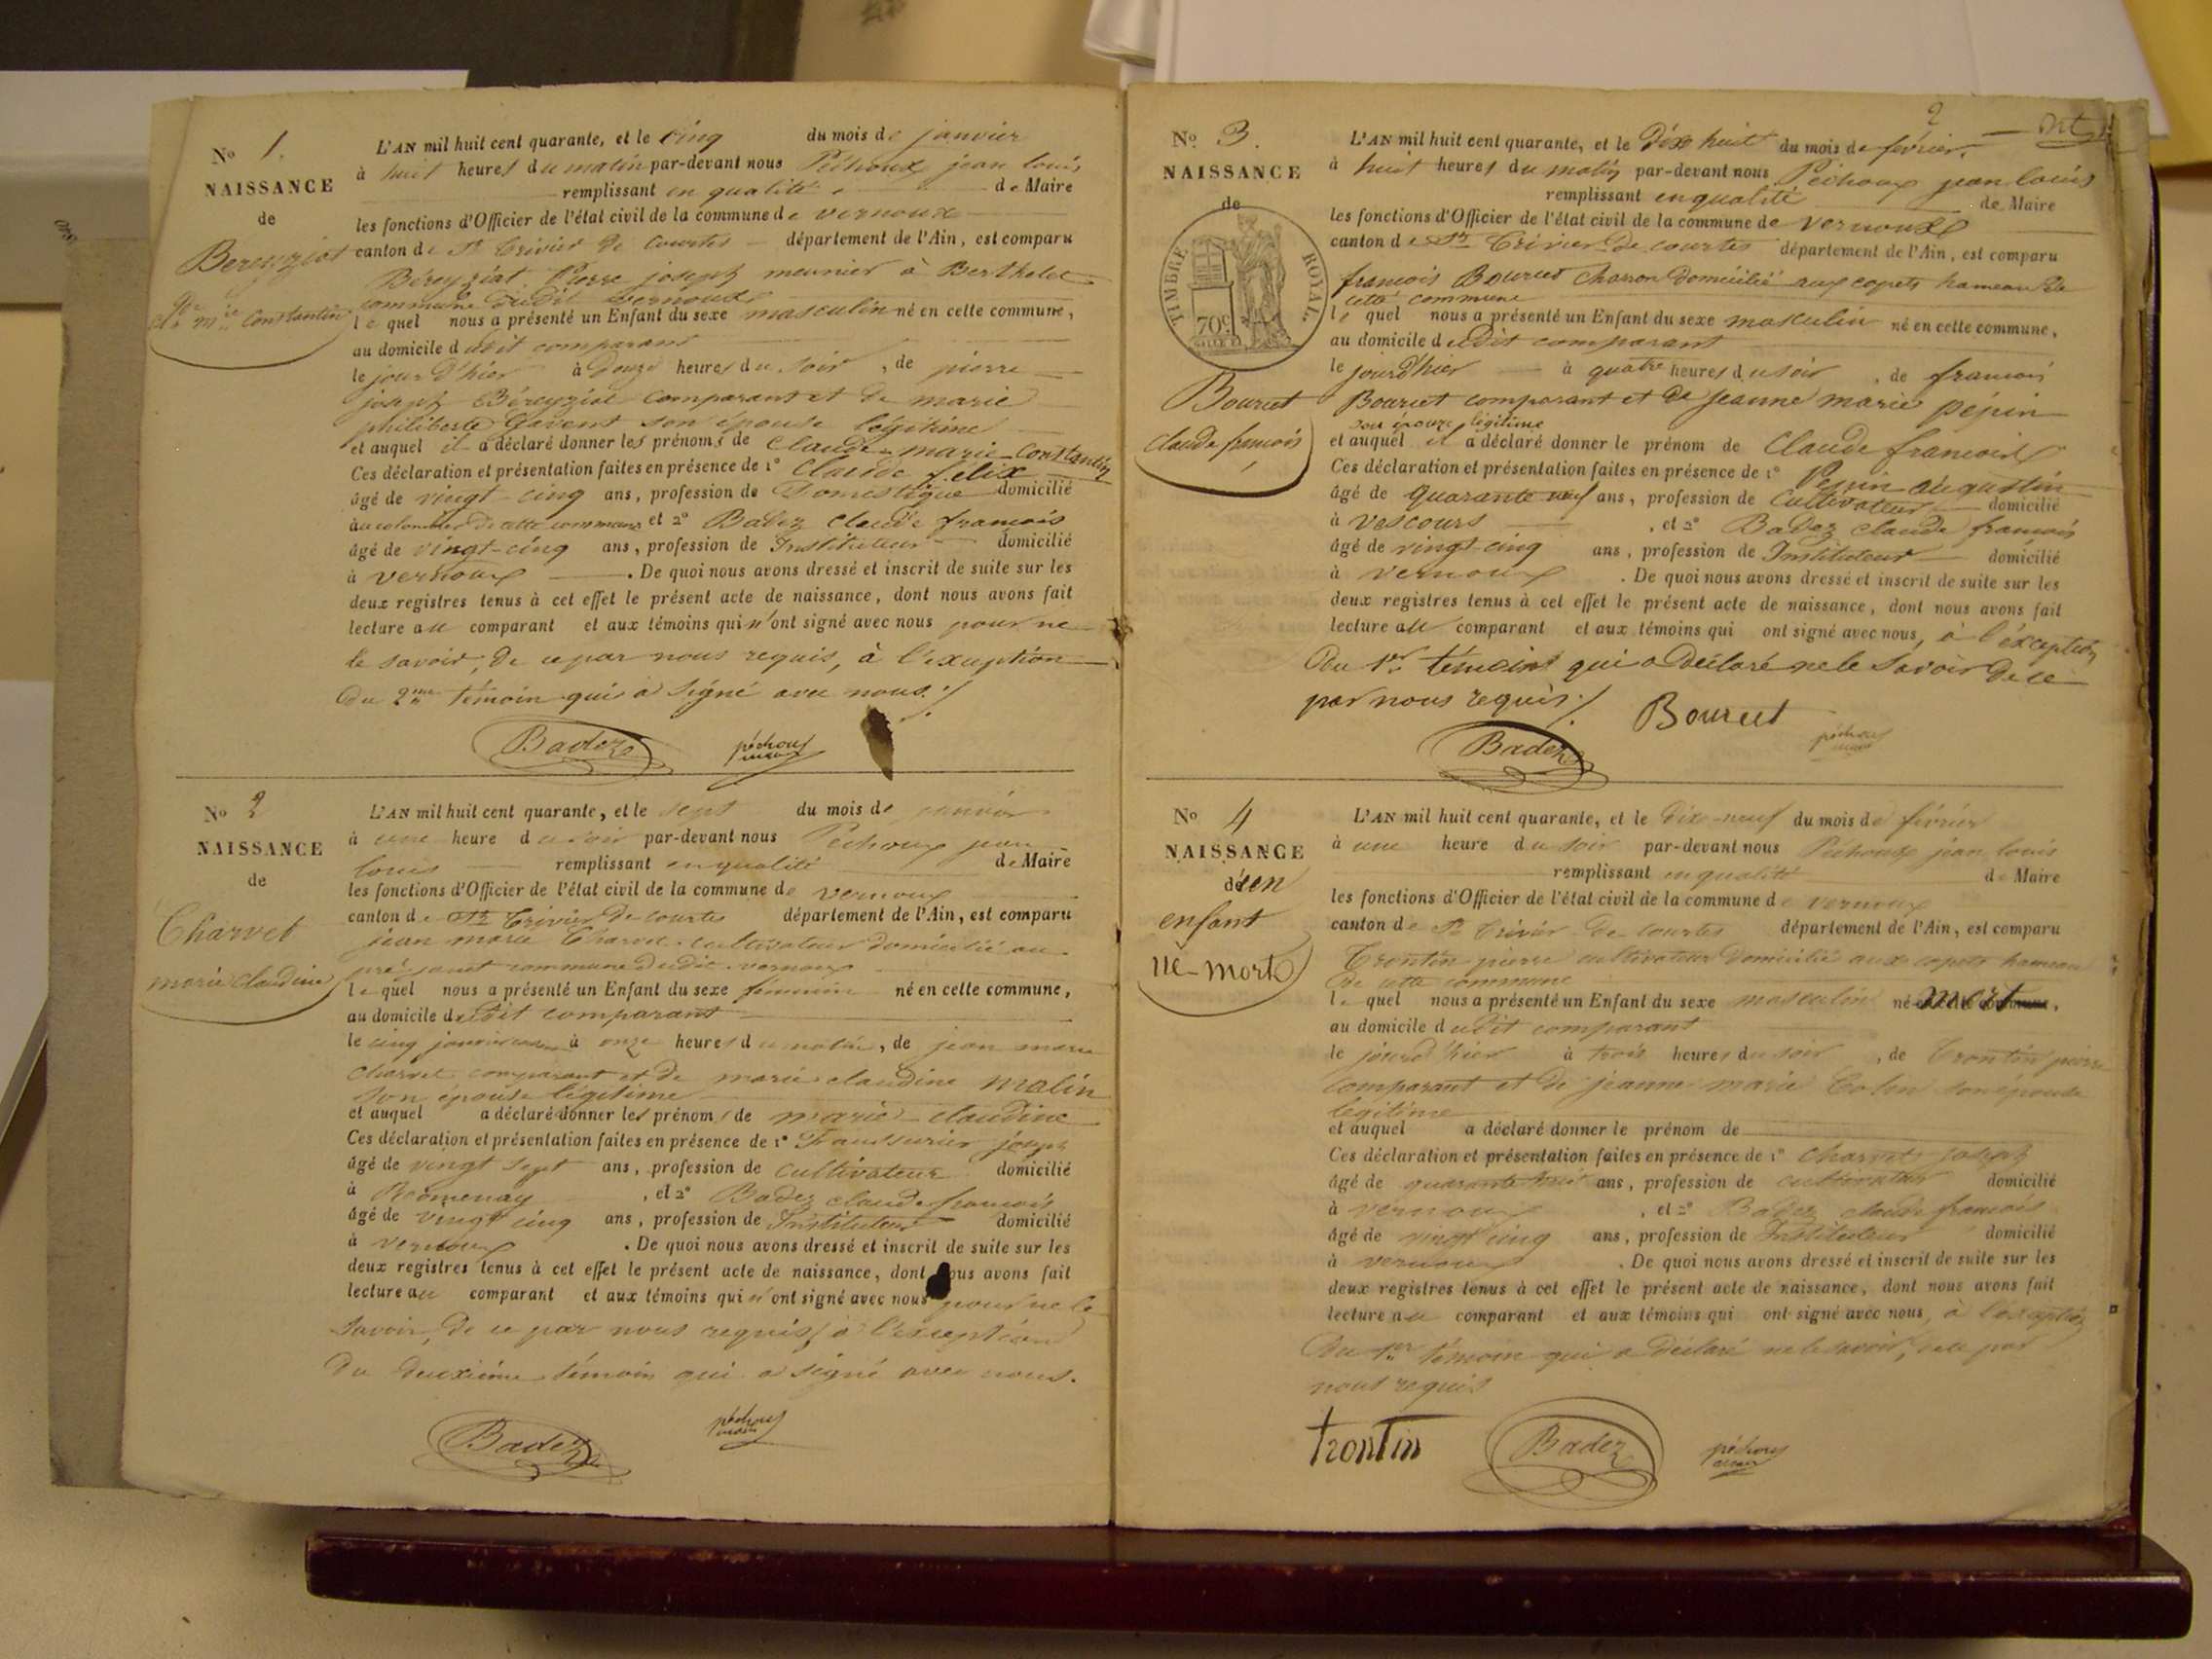 No 1.
NAISSANCE
de
Bereyziat
Cl.de m.ie Constantin
L'AN mil huit cent quarante, et le cinq du mois de janvier
à huit heures du matin par-devant nous Péchoux jean louis
remplissant en qualité de Maire
les fonctions d'Officier de l'état civil de la commune de vernoux
canton de St Trivier de Courtes département de l'Ain, est comparu
Béreyziat Pierre joseph meunier à Berthelet
commune dudit vernoux
lequel nous a présenté un Enfant du sexe masculin né en cette commune,
au domicile dudit comparant
le jour d'hier à douze heures du soir, de pierre
joseph Béreyziat comparant et de marie
philiberte Gavent son épouse légitime
et auquel il a déclaré donner les prénoms de Claude marie Constantin
Ces déclaration et présentation faites en présence de 1° Claude félix
âgé de vingt-cinq ans, profession de Domestique domicilié
au colombier de cette commune et 2° Badez Claude francois
âgé de vingt-cinq ans, profession de Instituteur domicilié
à vernoux. De quoi nous avons dressé et inscrit de suite sur les
deux registres tenus à cet effet le présent acte de naissance, dont nous avons fait
lecture au comparant et aux témoins qui n'ont signé avec nous pour ne
le savoir, de ce par nous requis, à l'exeption
du 2me témoin qui a signé avec nous ./.
Badez péchoux maire
No 2
NAISSANCE
de
Charvet
marie Claudine
L'AN mil huit cent quarante, et le sept du mois de janvier
à une heure du soir par-devant nous Péchoux jean
louis remplissant en qualité de Maire
les fonctions d'Officier de l'état civil de la commune de vernoux
canton de St Trivier de Courtes département de l'Ain, est comparu
jean marie Charvet cultivateur domicilié au
pré janet commune dudit vernoux
lequel nous a présenté un Enfant du sexe féminin né en cette commune,
au domicile dudit comparant
le cinq janvier à onze heures du matin, de jean marie
Charvet comparant et de marie claudine malin
son épouse légitime
et auquel a déclaré donner les prénoms de marie claudine
Ces déclaration et présentation faites en présence de 1° joseph
âgé de vingt sept ans, profession de cultivateur domicilié
à Romenay, et 2° Badez claude francois
âgé de vingt cinq ans, profession de Instituteur domicilié
à vernoux. De quoi nous avons dressé et inscrit de suite sur les
deux registres tenus à cet effet le présent acte de naissance, dont nous avons fait
lecture au comparant et aux témoins qui n'ont signé avec nous pour ne le
savoir, de ce par nous requis, à l'exception
du deuxième témoin qui a signé avec nous.
Badez péchoux maire
2
No 3.
NAISSANCE
de
TIMBRE ROYAL
70c
Bourcet
claude francois
L'AN mil huit cent quarante, et le dix huit du mois de février.
à huit heures du matin par-devant nous Péchoux jean louis
remplissant en qualité de Maire
les fonctions d'Officier de l'état civil de la commune de vernoux
canton de St Trivier de courtes département de l'Ain, est comparu
francois Bourcet charron domicilié aux copets hameau de
cette commune
lequel nous a présenté un Enfant du sexe masculin né en cette commune,
au domicile dudit comparant
le jour d'hier à quatre heures du soir, de francois
Bourcet comparant et de jeanne marie pépin
son épouse légitime
et auquel il a déclaré donner le prénom de Claude francois
Ces déclaration et présentation faites en présence de 1° Pepin augustin
âgé de quarante neuf ans, profession de cultivateur domicilié
à vescours, et 2° Badez claude francois
âgé de vingt-cinq ans, profession de Instituteur domicilié
à vernoux. De quoi nous avons dressé et inscrit de suite sur les
deux registres tenus à cet effet le présent acte de naissance, dont nous avons fait
lecture au comparant et aux témoins qui ont signé avec nous, à l'éxception
du 1er témoins qui a déclaré ne le savoir de ce
par nous requis ./.
Bourcet
Badez péchoux maire
No 4
NAISSANCE
d'un
enfant
né-mort
L'AN mil huit cent quarante, et le dix-neuf du mois de février
à une heure du soir par-devant nous Péchoux jean louis
remplissant en qualité de Maire
les fonctions d'Officier de l'état civil de la commune de vernoux
canton de St Trivier de Courtes département de l'Ain, est comparu
Trontin pierre cultivateur domicilié aux copets hameau
de cette commune
lequel nous a présenté un Enfant du sexe masculin né mort,
au domicile dudit comparant
le jour d'hier à trois heures du soir, de Trontin pierre
comparant et de jeanne marie Colin son épouse
légitime
et auquel a déclaré donner le prénom de
Ces déclaration et présentation faites en présence de 1° Charvet joseph
âgé de quarante huit ans, profession de cultivateur domicilié
à vernoux, et 2° Badez claude francois
âgé de vingt cinq ans, profession de Instituteur domicilié
à vernoux. De quoi nous avons dressé et inscrit de suite sur les
deux registres tenus à cet effet le présent acte de naissance, dont nous avons fait
lecture au comparant et aux témoins qui ont signé avec nous, à l'exception
du 1er témoin qui a déclaré ne le savoir, de ce par
nous requis
trontin Badez péchoux maire